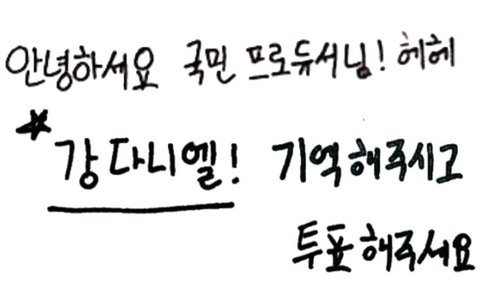 안녕하세요 국민 프로듀서님! 헤헤
*강다니엘! 기억해주시고
투표해주세요